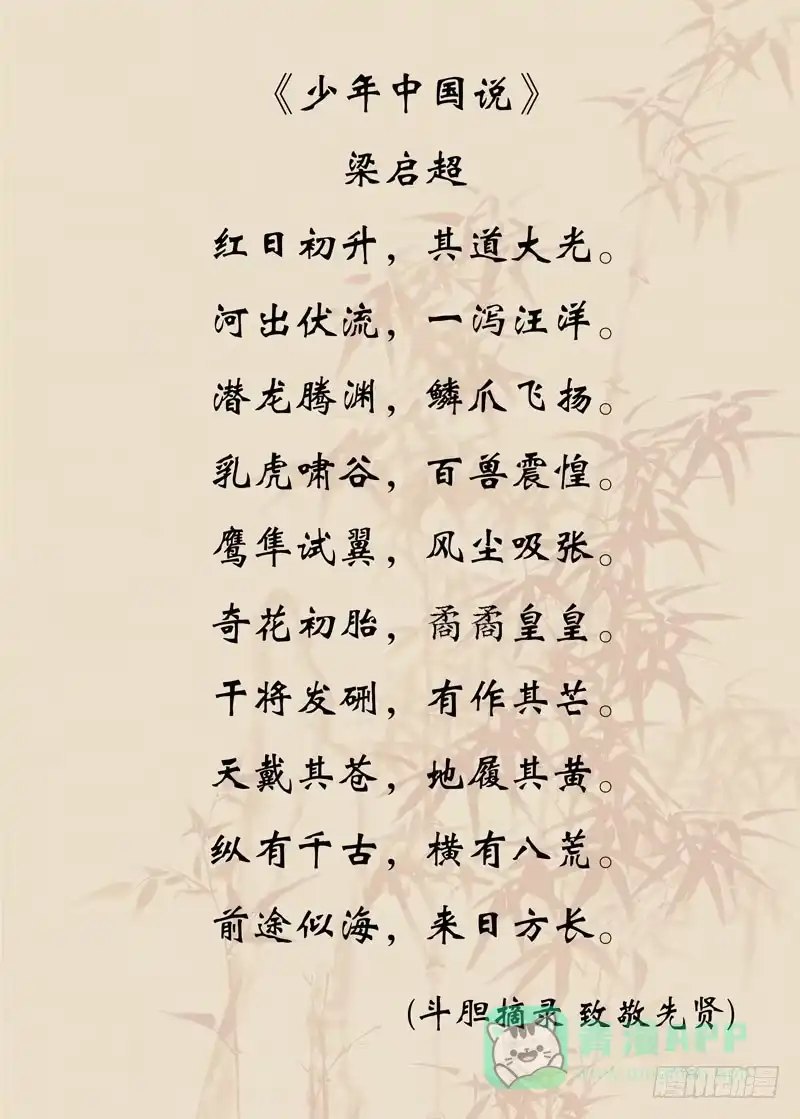 《少年中国说》
梁启超
红日初升，其道大光。
河出伏流，一泻汪洋。
潜龙腾渊，鳞爪飞扬。
乳虎啸谷，百兽震惶。
鹰隼试翼，风尘吸张。
奇花初胎，矞矞皇皇。
干将发硎，有作其芒。
天戴其苍，地履其黄。
纵有千古，横有八荒。
前途似海，来日方长。
(斗胆摘录 致敬先贤)
青漫APP
腾讯动漫